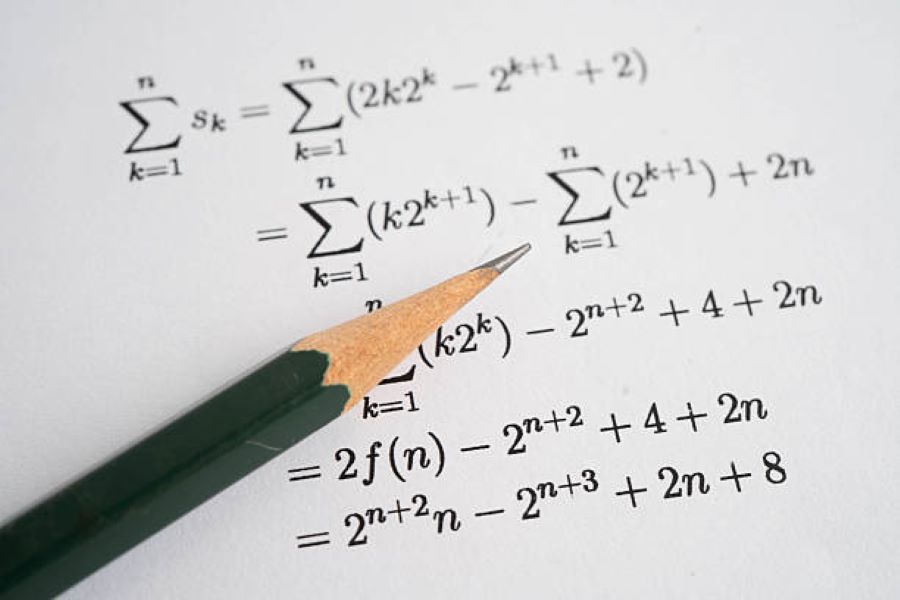 \sum_{k=1}^{n} s_k = \sum_{k=1}^{n} (2k2^k - 2^{k+1} + 2)
= \sum_{k=1}^{n} (k2^{k+1}) - \sum_{k=1}^{n} (2^{k+1}) + 2n
\sum_{k=1}^{n} (k2^k) - 2^{n+2} + 4 + 2n
= 2f(n) - 2^{n+2} + 4 + 2n
= 2^{n+2}n - 2^{n+3} + 2n + 8